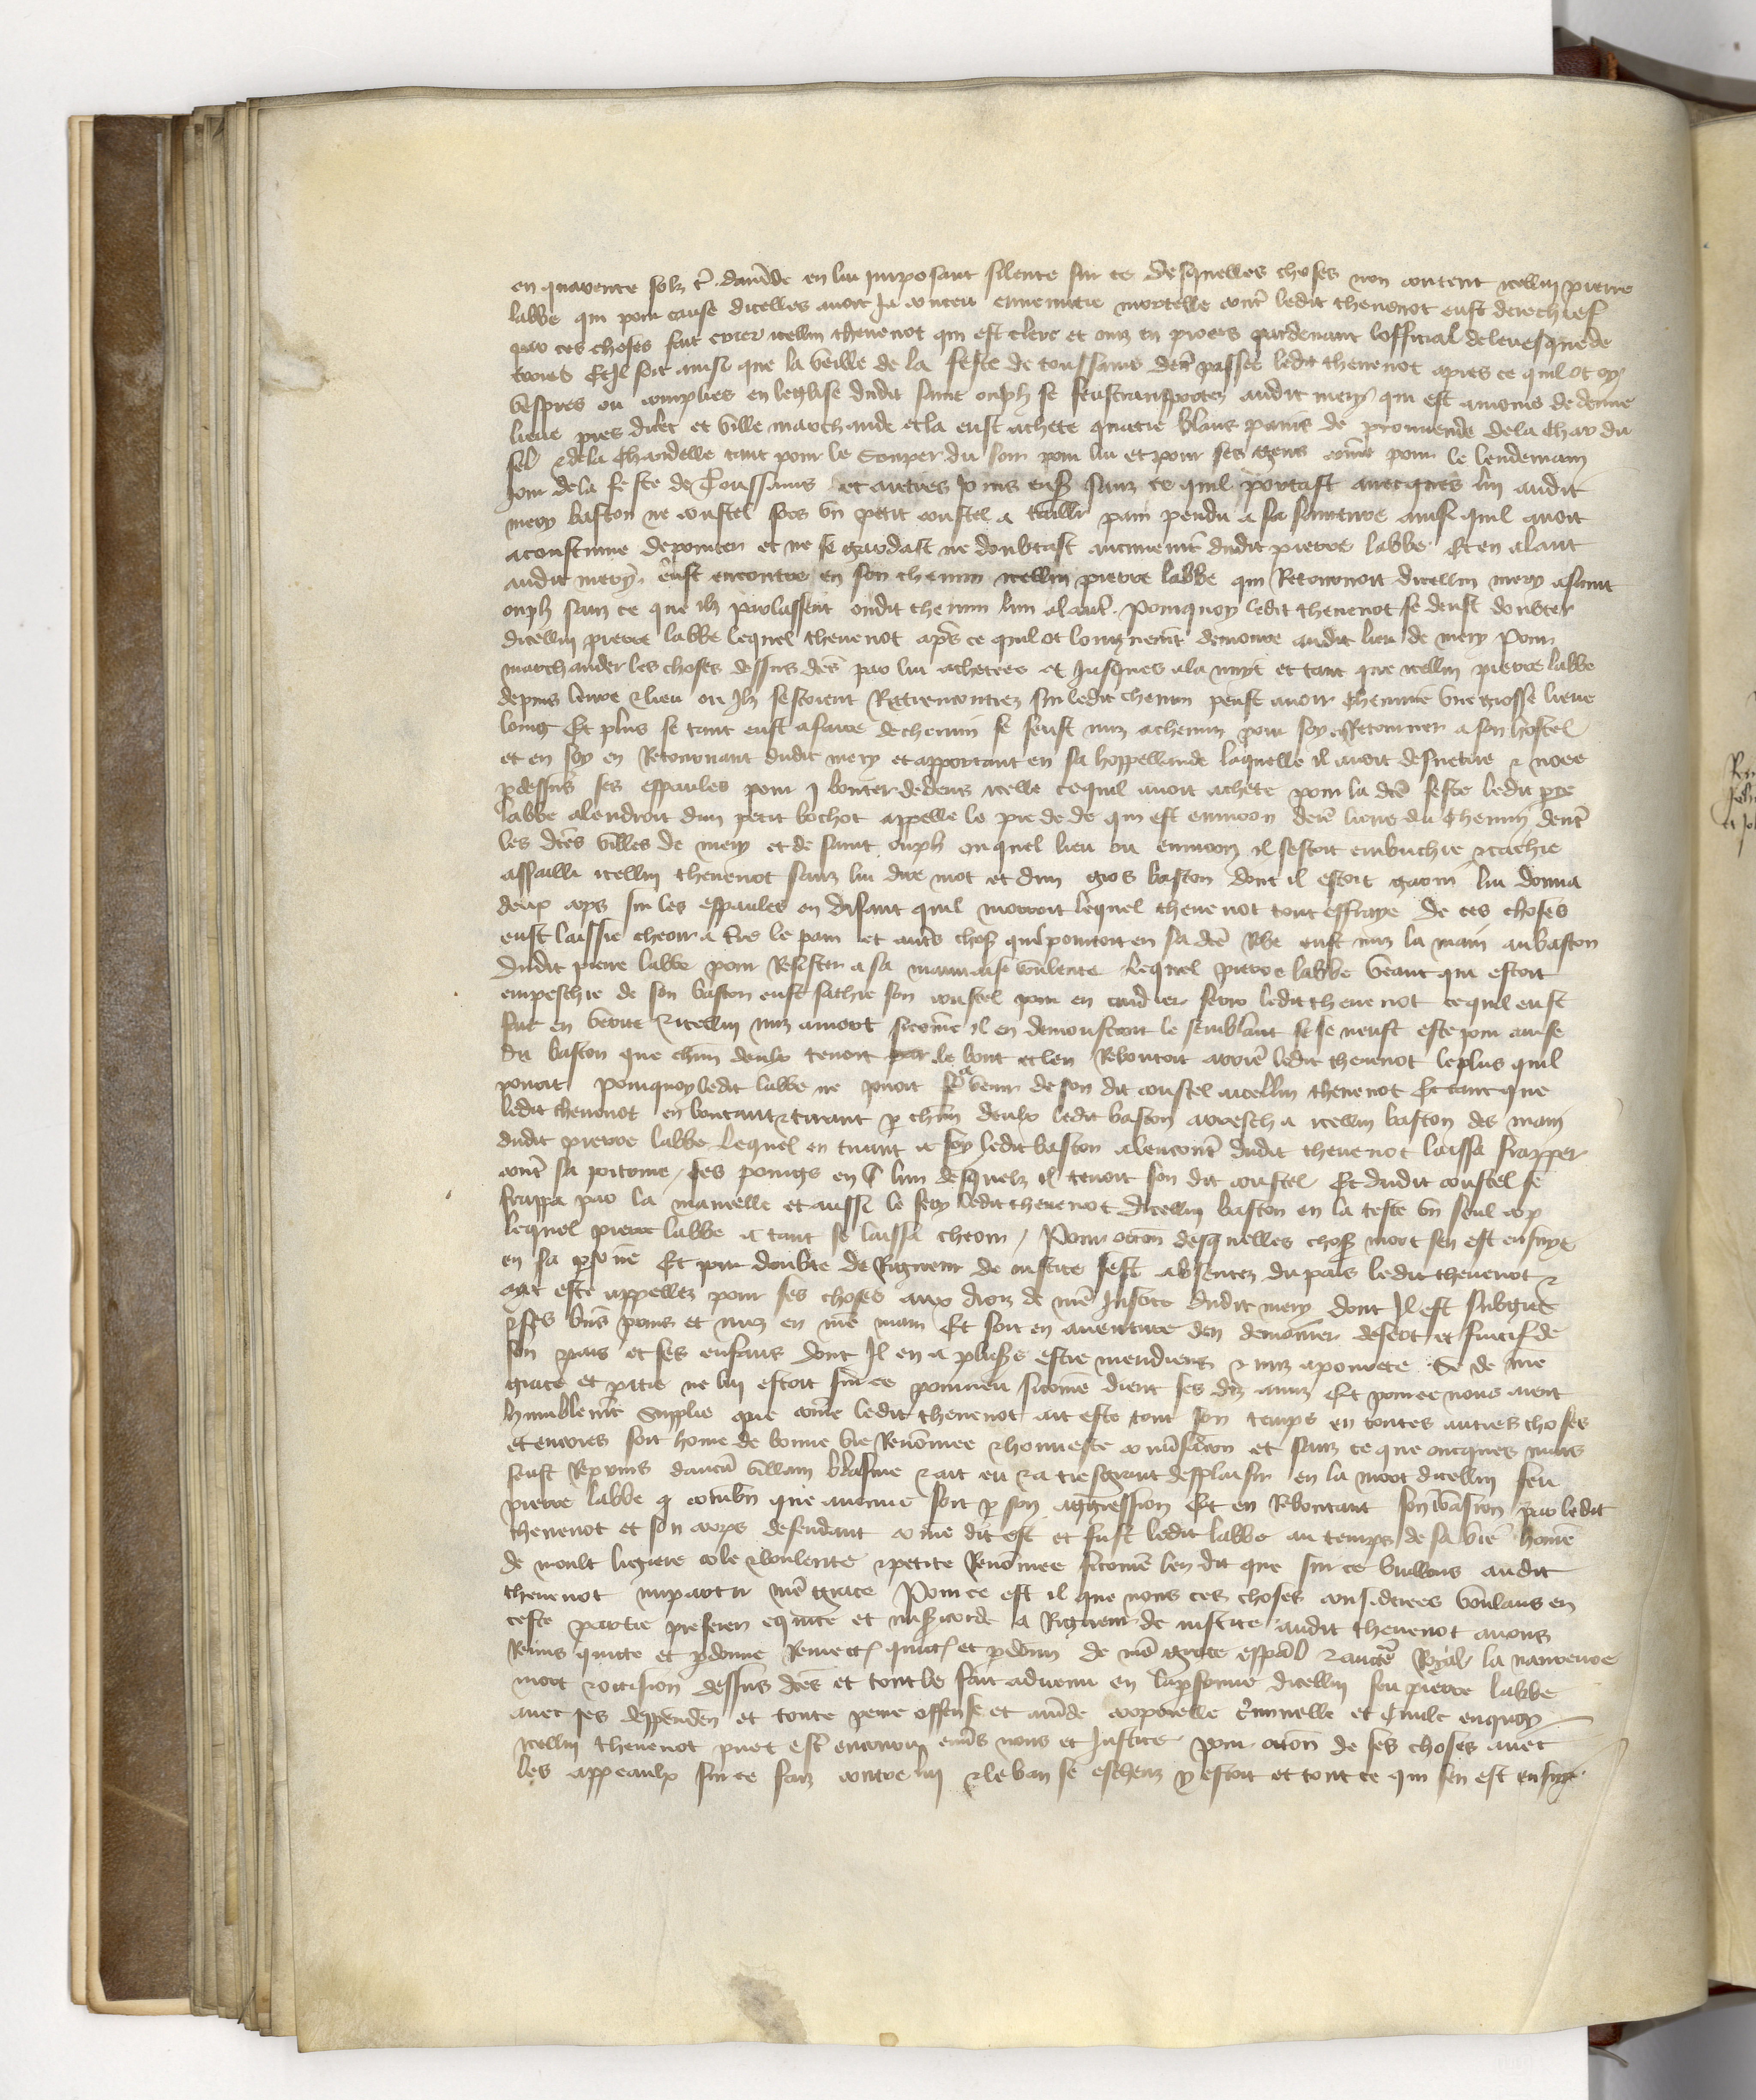 en quarente solz t. damde en lui imposant silence sur ce desquelles choses non content icellui pierre
labbe qui pour cause dicelles avoit ja conceu ennemitie mortelle contre ledit thevenot eust derechief
pour ces choses fait citer icellui thevenot qui est clerc et mis en proces pardevant lofficial de levesque de
troies Et il soit ainsi que la veille de la feste de toussains derr passee ledit thevenot apres ce quil ot oy
vespres ou complies en leglise dudit saint ouph se feust transportez audit mery qui est a moins de demie
lieue pres dilec et ville marchande et la eust achete quatre blans pains de prouvende de la char du
sel et de la chandelle tant pour le souper du soir pour lui et pour ses gens come pour le lendemain
jour de la feste de Toussains et autres jours ens sanz ce quil portast avecques lui audit
mery baston ne coustel fors un petit coustel a taillier pain pendu a sa sainture ainsi quil avoit
acoustume de porter et ne se gardast ne doubtast aucunemt dudit pierre labbe Et en alant
audit mery eust encontre en son chemin icellui pierre labbe qui Retournoit dicellui mery a saint
ouph sanz ce que ilz parlassent oudit chemin lun a lautre pourquoy ledit thevenot se deust doubter
dicellui pierre labbe lequel thevenot apres ce quil ot longuemt demoure audit lieu de mery pour
marchander les choses dessus des par lui achetees et jusques a la nuyt et tant que icellui pierre labbe
depuis leure et lieu ou ilz sestoient Rencontrez sur ledit chemin peust avoir chemine une grosse lieue
loing Et plus se tant eust a faire de chemin se feust mis a chemin pour soy en Retourner a son hostel
et en soy en Retournant dudit mery et apportant en sa hoppellande laquelle il avoit desvetue et noee
p dessus ses espaules pour y bouter dedens icelle ce quil avoit achete pour la de feste ledit pre
labbe alendroit dun petit bochot appelle le pre de de qui est environ demie lieue du chemin dentre
les des villes de mery et de saint ouph ouquel lieu ou environ il sestoit embuchie et cachie
assailli icellui thevenot sanz lui dire mot et dun gros baston dont il estoit garni lui donna
deux cops sur les espaules en disant quil mourroit lequel thevenot tout effraye de ces choses
eust laissie cheoir a tre le pain et autres chos quil portoit en sa de Robe eust mis la main au baston
dudit pierre labbe pour Resister a sa mauvaise voulente lequel pierre labbe veant qui estoit
empeschie de son baston eust sachie son coustel pour en cuidier ferir ledit thevenot ce quil eust
fait en verite et icellui mis a mort sicome il en demonstroit le semblant se ce neust este pour cause
du baston que chun deulx tenoit par le bout et len Reboutoit arriere ledit thevenot le plus quil
povoit pourquoy ledit labbe ne povoit a venir de son dit coustel a icellui thevenot Et tant que
ledit thevenot en boutant et tirant p chun deulx ledit baston arrescha icellui baston des mains
dudit pierre labbe lequel en tirant a soy ledit baston alencontre dudit thevenot laissa frapper
contre sa poitrine ses poings en lun desquelz il tenoit son dit coustel Et dudit coustel se
frappa par la mamelle et aussi le fery ledit thevenot dicellui baston en la teste un seul cop
lequel pierre labbe a tant se laissa cheoir / Pour occon desquelles chos mort sen est ensuye
en sa psone Et pour doubte de Rigueur de justice sest absentez du pais ledit thevenot et
ait este appellez pour ses choses aux drois de nre justice dudit mery dont il est subgiet
et ses biens prins et mis en nre main Et soit en aventure den demourer desert et fuitif de
son pais et ses enfans dont il en a pluss estre mendiens et mis a povrete Se de nre
grace et pitie ne lui estoit sur ce pourveu sicome dient ses diz amis Et pour ce nous aient
humblemt Supplie que come ledit thevenot ait este tout son temps en toutes autres choses
et encores soit home de bonne vie Renommee et honneste conversacion et sanz ce que oncques mais
feust Reprins daucun villain blasme et ait eu et a tresgrant desplaisir en la mort dicellui feu
pierre labbe q combn que avenue soit p son aggression Et en Reboutant son baston par ledit
thevenot et son corps defendant come dit est et fust ledit labbe au temps de sa vie home
de moult legiere cole et voulente et petite Renommee sicome len dit que sur ce vueillons audit
thevenot impartir nre grace Pour ce est il que nous ces choses considerees voulans en
ceste partie preferer equite et misericorde a Rigueur de justice audit thevenot avons
Remis quitte et pdonne Remett quitt et pdonn de nre grace espal et aucte Royal la navreure
mort et occision dessus des et tout le fait advenu en la personne dicellui feu pierre labbe
avec ses deppenden et toute peine offense et amde corporelle criminelle et civile enquoy
icellui thevenot puet estre encouru envers nous et justice pour occon de ses choses avec
les appeaulx sur ce faiz contre lui et le ban se escheuz y estoit et tout ce qui sen est ensuye